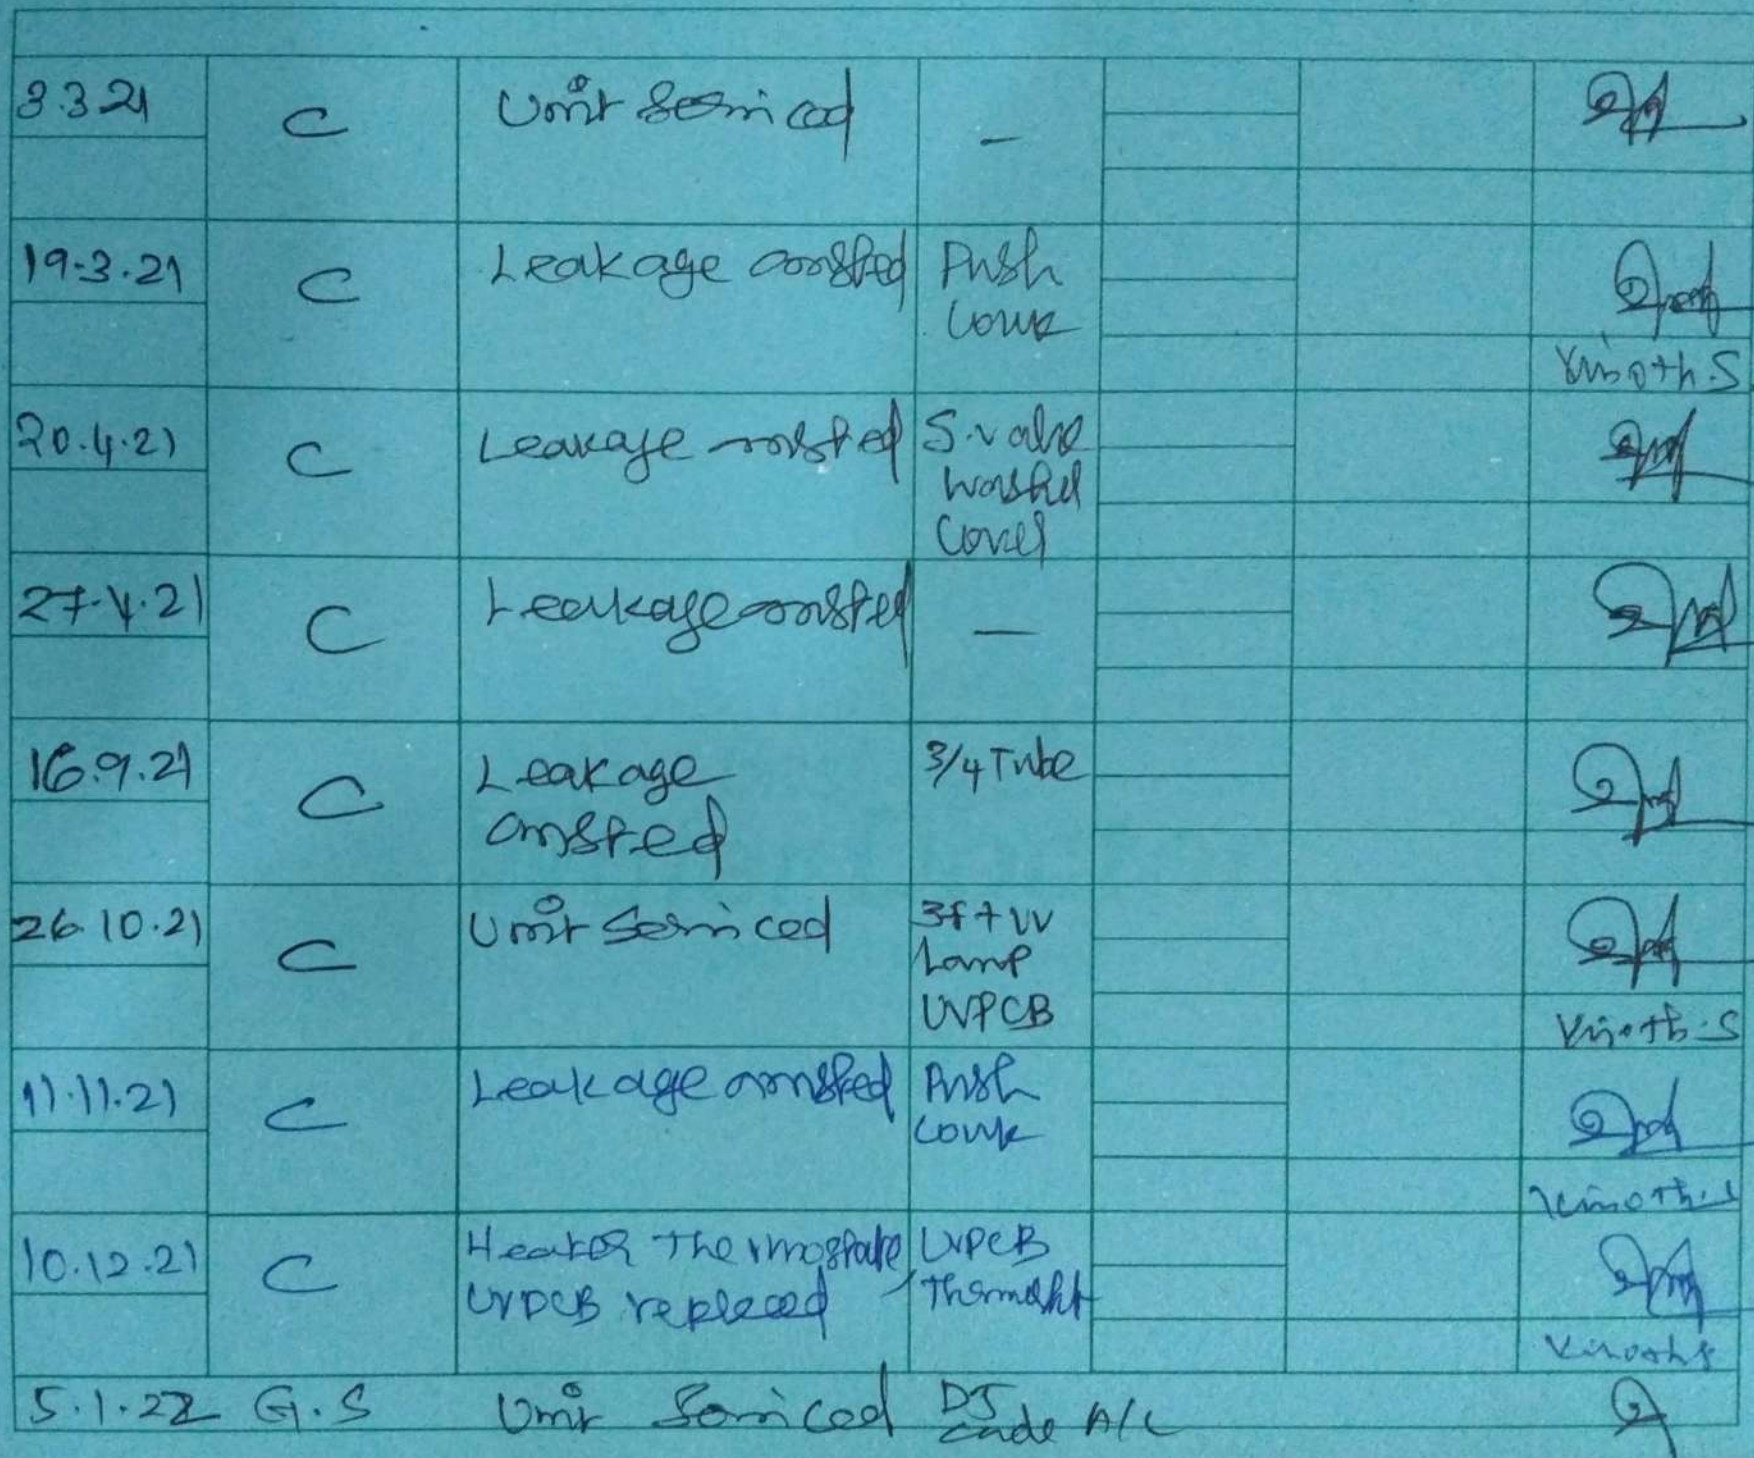 3.3.21 C Unit Serviced —
19.3.21 C Leakage arrested Push
Couk
Vinoth.S
20.4.21 C Leakage arrested S.valve
Washer
Cover
27.4.21 C Leakage arrested —
16.9.21 C Leakage 3/4 Tube
arrested
26.10.21 C Unit Serviced 3ft UV
Lamp
UVPCB
Vinoth.S
11.11.21 C Leakage arrested Push
Couk
Vinoth.S
10.12.21 C Heater Thermostate, UVPCB
UVPCB replaced Thermosht
Vinoth S
5.1.22 G.S Unit Serviced A/C